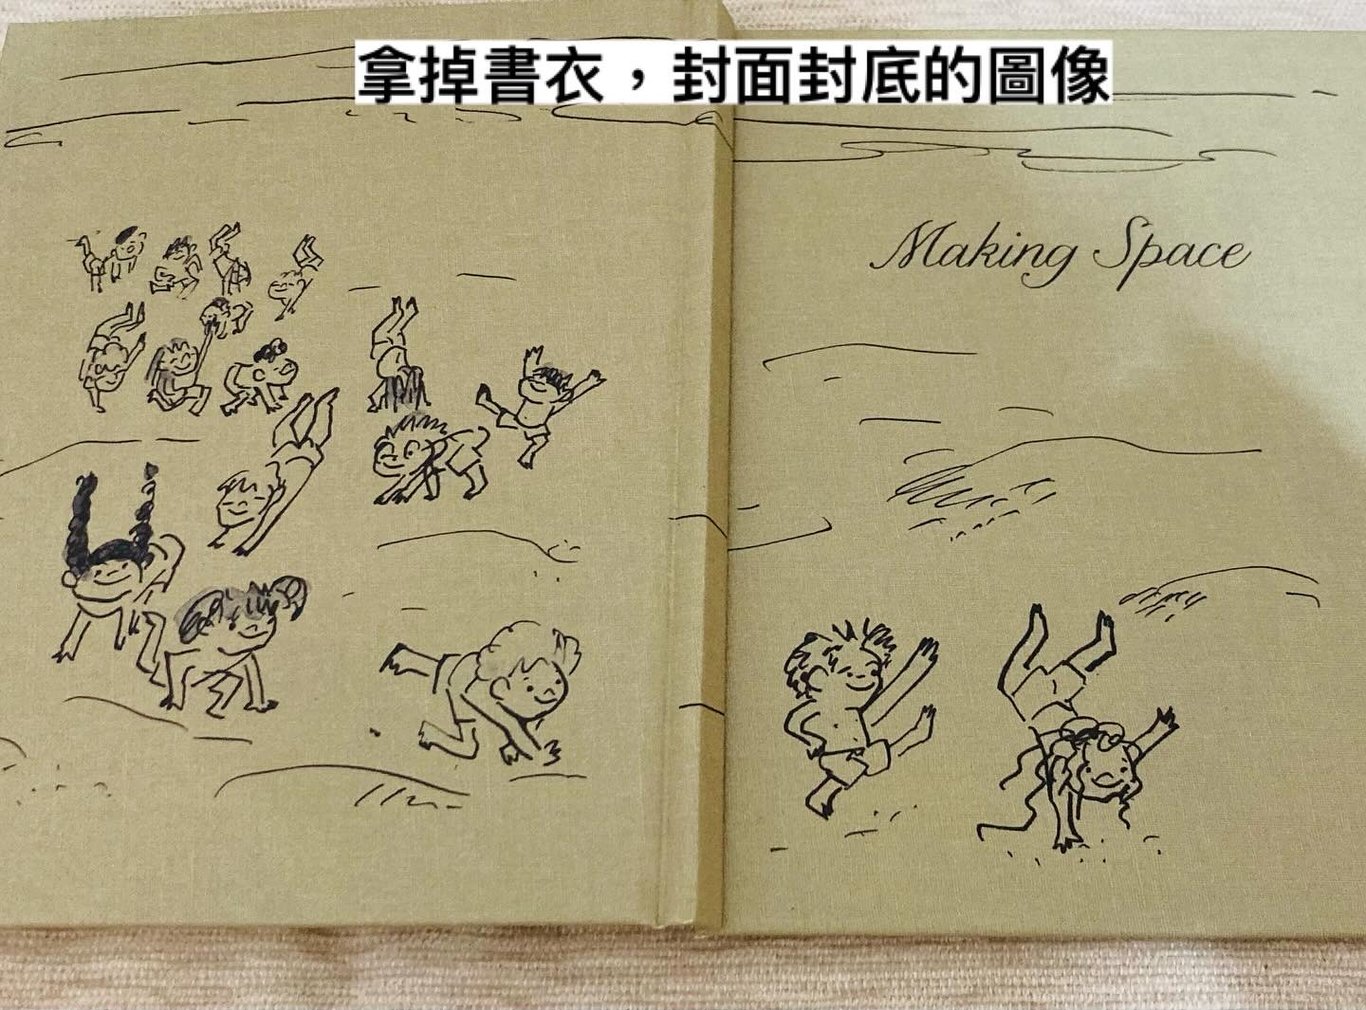 拿掉書衣，封面封底的圖像
Making Space